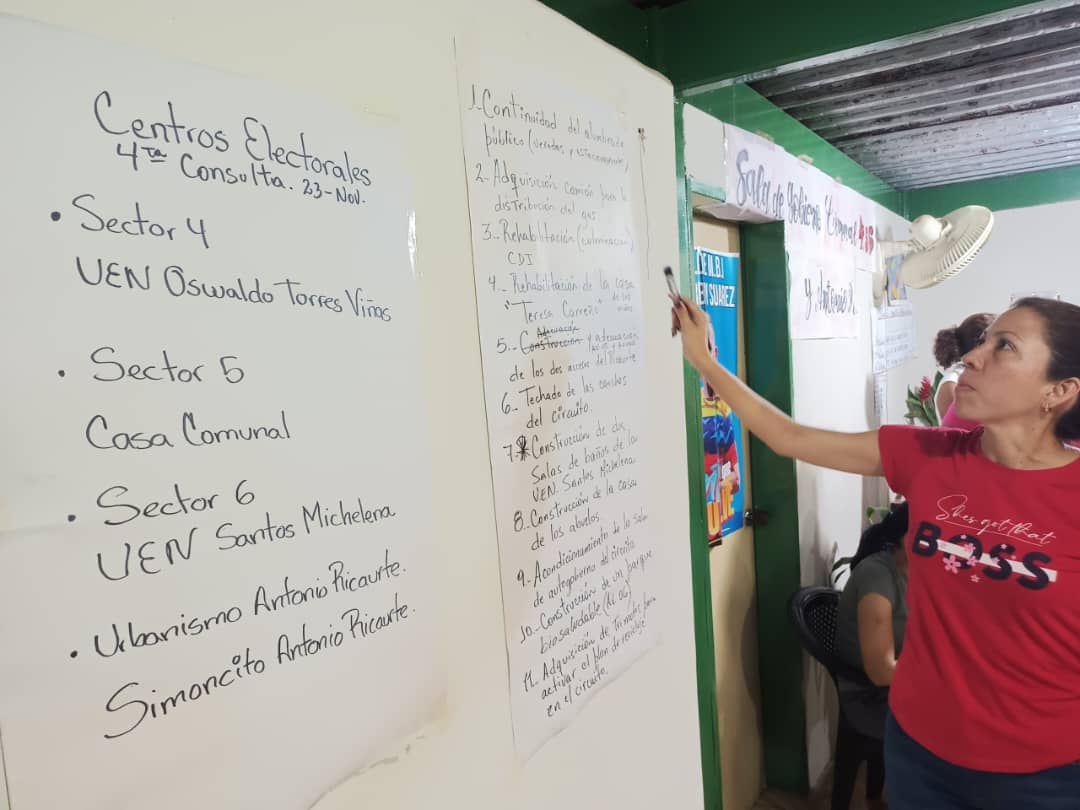 Centros Electorales
4ta Consulta. 23-Nov.
• Sector 4
UEN Oswaldo Torres Viñas
• Sector 5
Casa Comunal
• Sector 6
UEN Santos Michelena
• Urbanismo Antonio Ricaurte.
Simoncito Antonio Ricaurte.
1. Continuidad del alumbrado
público (veredas y estacionamientos)
2- Adquisición camión para la
distribución del gas
3.. Rehabilitación (culminación)
CDI
4.. Rehabilitación de la casa
"Teresa Carreño" de los
Adecuación
5.. Construcción y adecuación
de los dos accesos del
6.. Techado de las canchas
del circuito.
7. Construcción de dos
Salas de baños de la
UEN. Santos Michelena
8.. Construcción de la casa
de los abuelos.
9.. Acondicionamiento de la Sala
de autogobierno del circuito
10.- Construcción de un parque
biosaludable
11. Adquisición de para
activar el plan de reciclaje
en el circuito.
Sala de Gobierno Comunal
y
SUAREZ
She's got that
BOSS